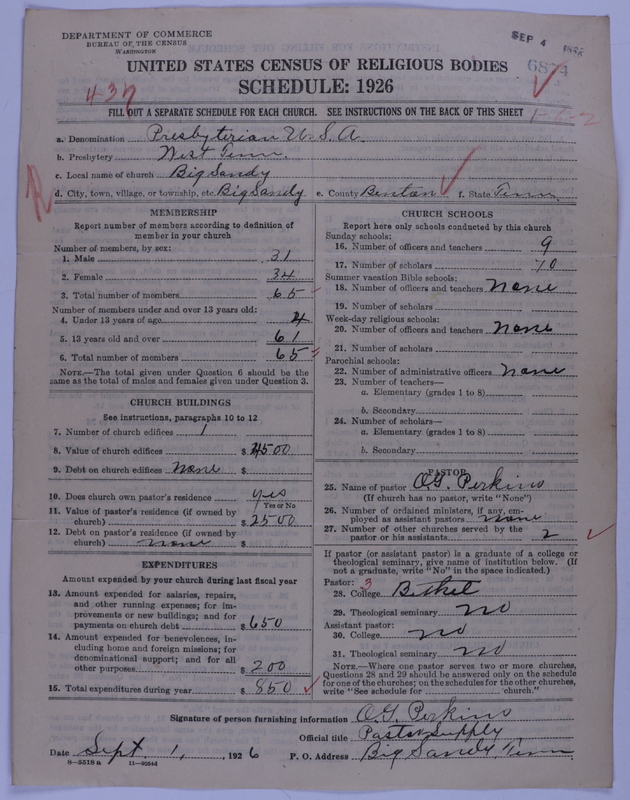 DEPARTMENT OF COMMERCE
BUREAU OF THE CENSUS
WASHINGTON
SEP 4
UNITED STATES CENSUS OF RELIGIOUS BODIES
SCHEDULE: 1926
437
FILL OUT A SEPARATE SCHEDULE FOR EACH CHURCH. SEE INSTRUCTIONS ON THE BACK OF THIS SHEET
1-6-2
a. Denomination Presbyterian U.S.A.
b. Presbytery West Tenn.
c. Local name of church Big Sandy
d. City, town, village, or township, etc. Big Sandy e. County Benton f. State Tenn
MEMBERSHIP
Report number of members according to definition of
member in your church
Number of members, by sex:
1. Male 31
2. Female 34
3. Total number of members 65
Number of members under and over 13 years old:
4. Under 13 years of age 4
5. 13 years old and over 61
6. Total number of members 65
NOTE.—The total given under Question 6 should be the
same as the total of males and females given under Question 3.
CHURCH BUILDINGS
See instructions, paragraphs 10 to 12
7. Number of church edifices 1
8. Value of church edifices $ 4500
9. Debt on church edifices None $
10. Does church own pastor's residence yes
Yes or No
11. Value of pastor's residence (if owned by
church) $ 2500
12. Debt on pastor's residence (if owned by
church) none $
EXPENDITURES
Amount expended by your church during last fiscal year
13. Amount expended for salaries, repairs,
and other running expenses; for im-
provements or new buildings; and for
payments on church debt $ 650
14. Amount expended for benevolences, in-
cluding home and foreign missions; for
denominational support; and for all
other purposes $ 200
15. Total expenditures during year $ 850
CHURCH SCHOOLS
Report here only schools conducted by this church
Sunday schools:
16. Number of officers and teachers 9
17. Number of scholars 70
Summer vacation Bible schools:
18. Number of officers and teachers None
19. Number of scholars
Week-day religious schools:
20. Number of officers and teachers None
21. Number of scholars
Parochial schools:
22. Number of administrative officers None
23. Number of teachers—
a. Elementary (grades 1 to 8)
b. Secondary
24. Number of scholars—
a. Elementary (grades 1 to 8)
b. Secondary
PASTOR
25. Name of pastor O.G. Perkins
(If church has no pastor, write "None")
26. Number of ordained ministers, if any, em-
ployed as assistant pastors none
27. Number of other churches served by the
pastor or his assistants 2
If pastor (or assistant pastor) is a graduate of a college or
theological seminary, give name of institution below. (If
not a graduate, write "No" in the space indicated.)
Pastor: 3
28. College Bethel
29. Theological seminary No
Assistant pastor:
30. College No
31. Theological seminary No
NOTE.—Where one pastor serves two or more churches,
Questions 28 and 29 should be answered only on the schedule
for one of the churches; on the schedules for the other churches,
write "See schedule for church."
Signature of person furnishing information O.G. Perkins
Official title Pastor Supply
Date Sept. 1, 1926 P. O. Address Big Sandy, Tenn
8-5518 a